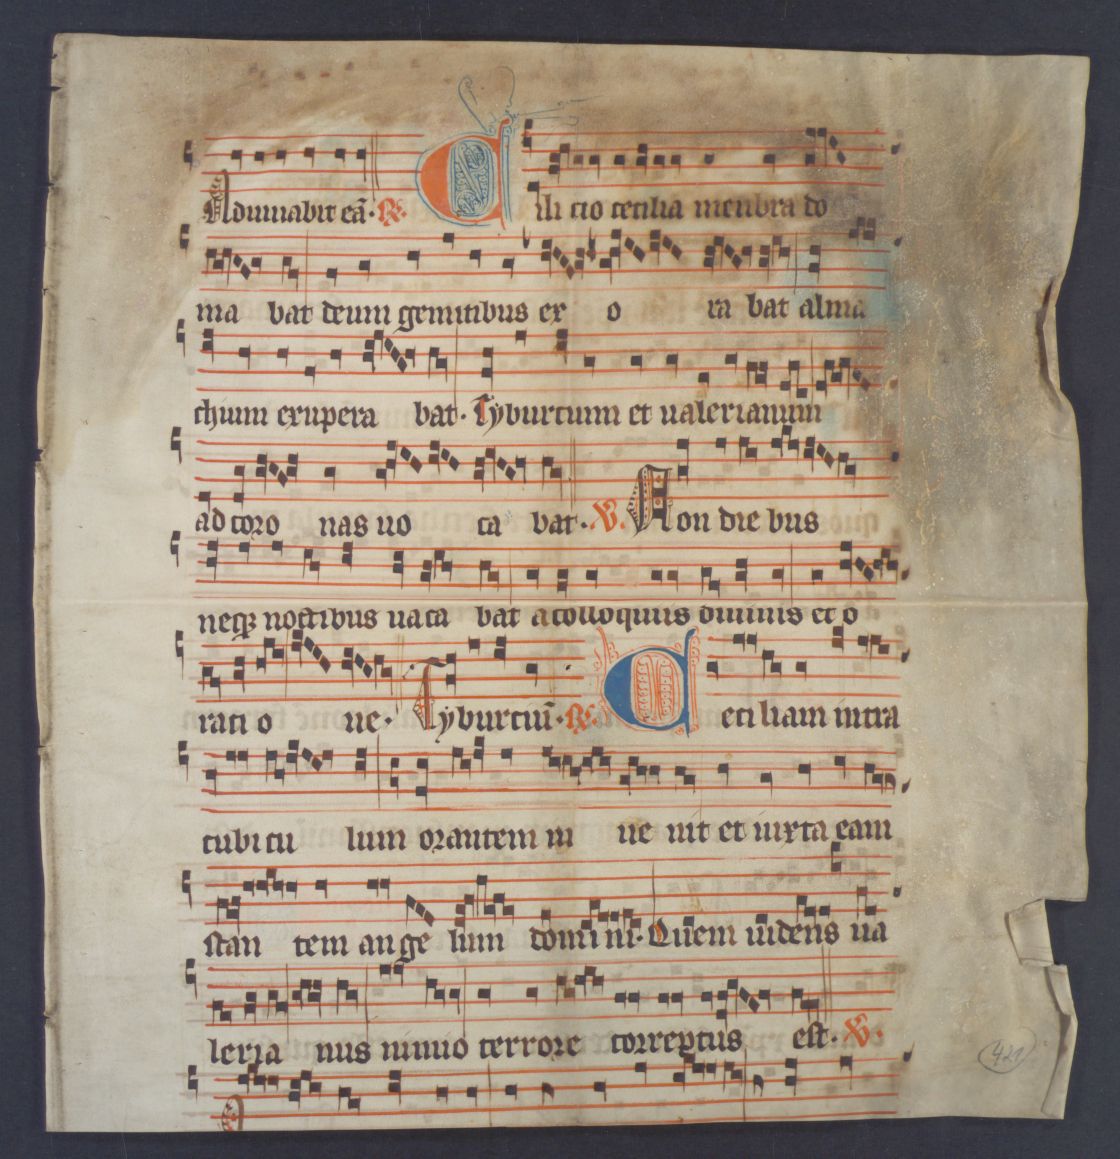 Adiuuabit eā. ℟. Cili cio cecilia menbra do
ma bat deum gemitibus ex o ra bat alma
chium exupera bat. Tyburcium et ualerianum
ad coro nas uo ca bat. ℣. Non die bus
neqꝫ noctibus uaca bat a colloquiis diuinis et o
rati o ne. Tyburciū. ℟. Ceci liam intra
cubi cu lum orantem in ue nit et iuxta eam
stan tem an ge lum domi ni. Quem uidens ua
leria nus nimio terrore correptus est. ℣.
421